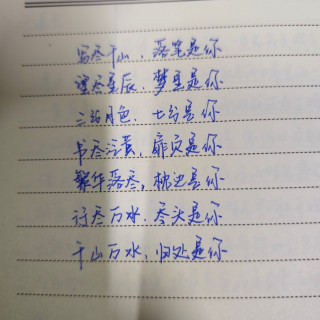 写尽千山，落笔是你
望尽星辰，梦里是你
三分月色，七分是你
书尽泛黄，扉页是你
繁华落尽，枕边是你
行尽万水，尽头是你
千山万水，归处是你